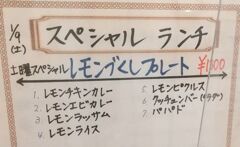 1/9
(土)
スペシャル ランチ
土曜スペシャル レモンづくしプレート ¥1300
1. レモンチキンカレー
2. レモンエビカレー
3. レモンラッサム
4. レモンライス
5. レモンピクルス
6. クッチュンバー(サラダ)
7. パパド